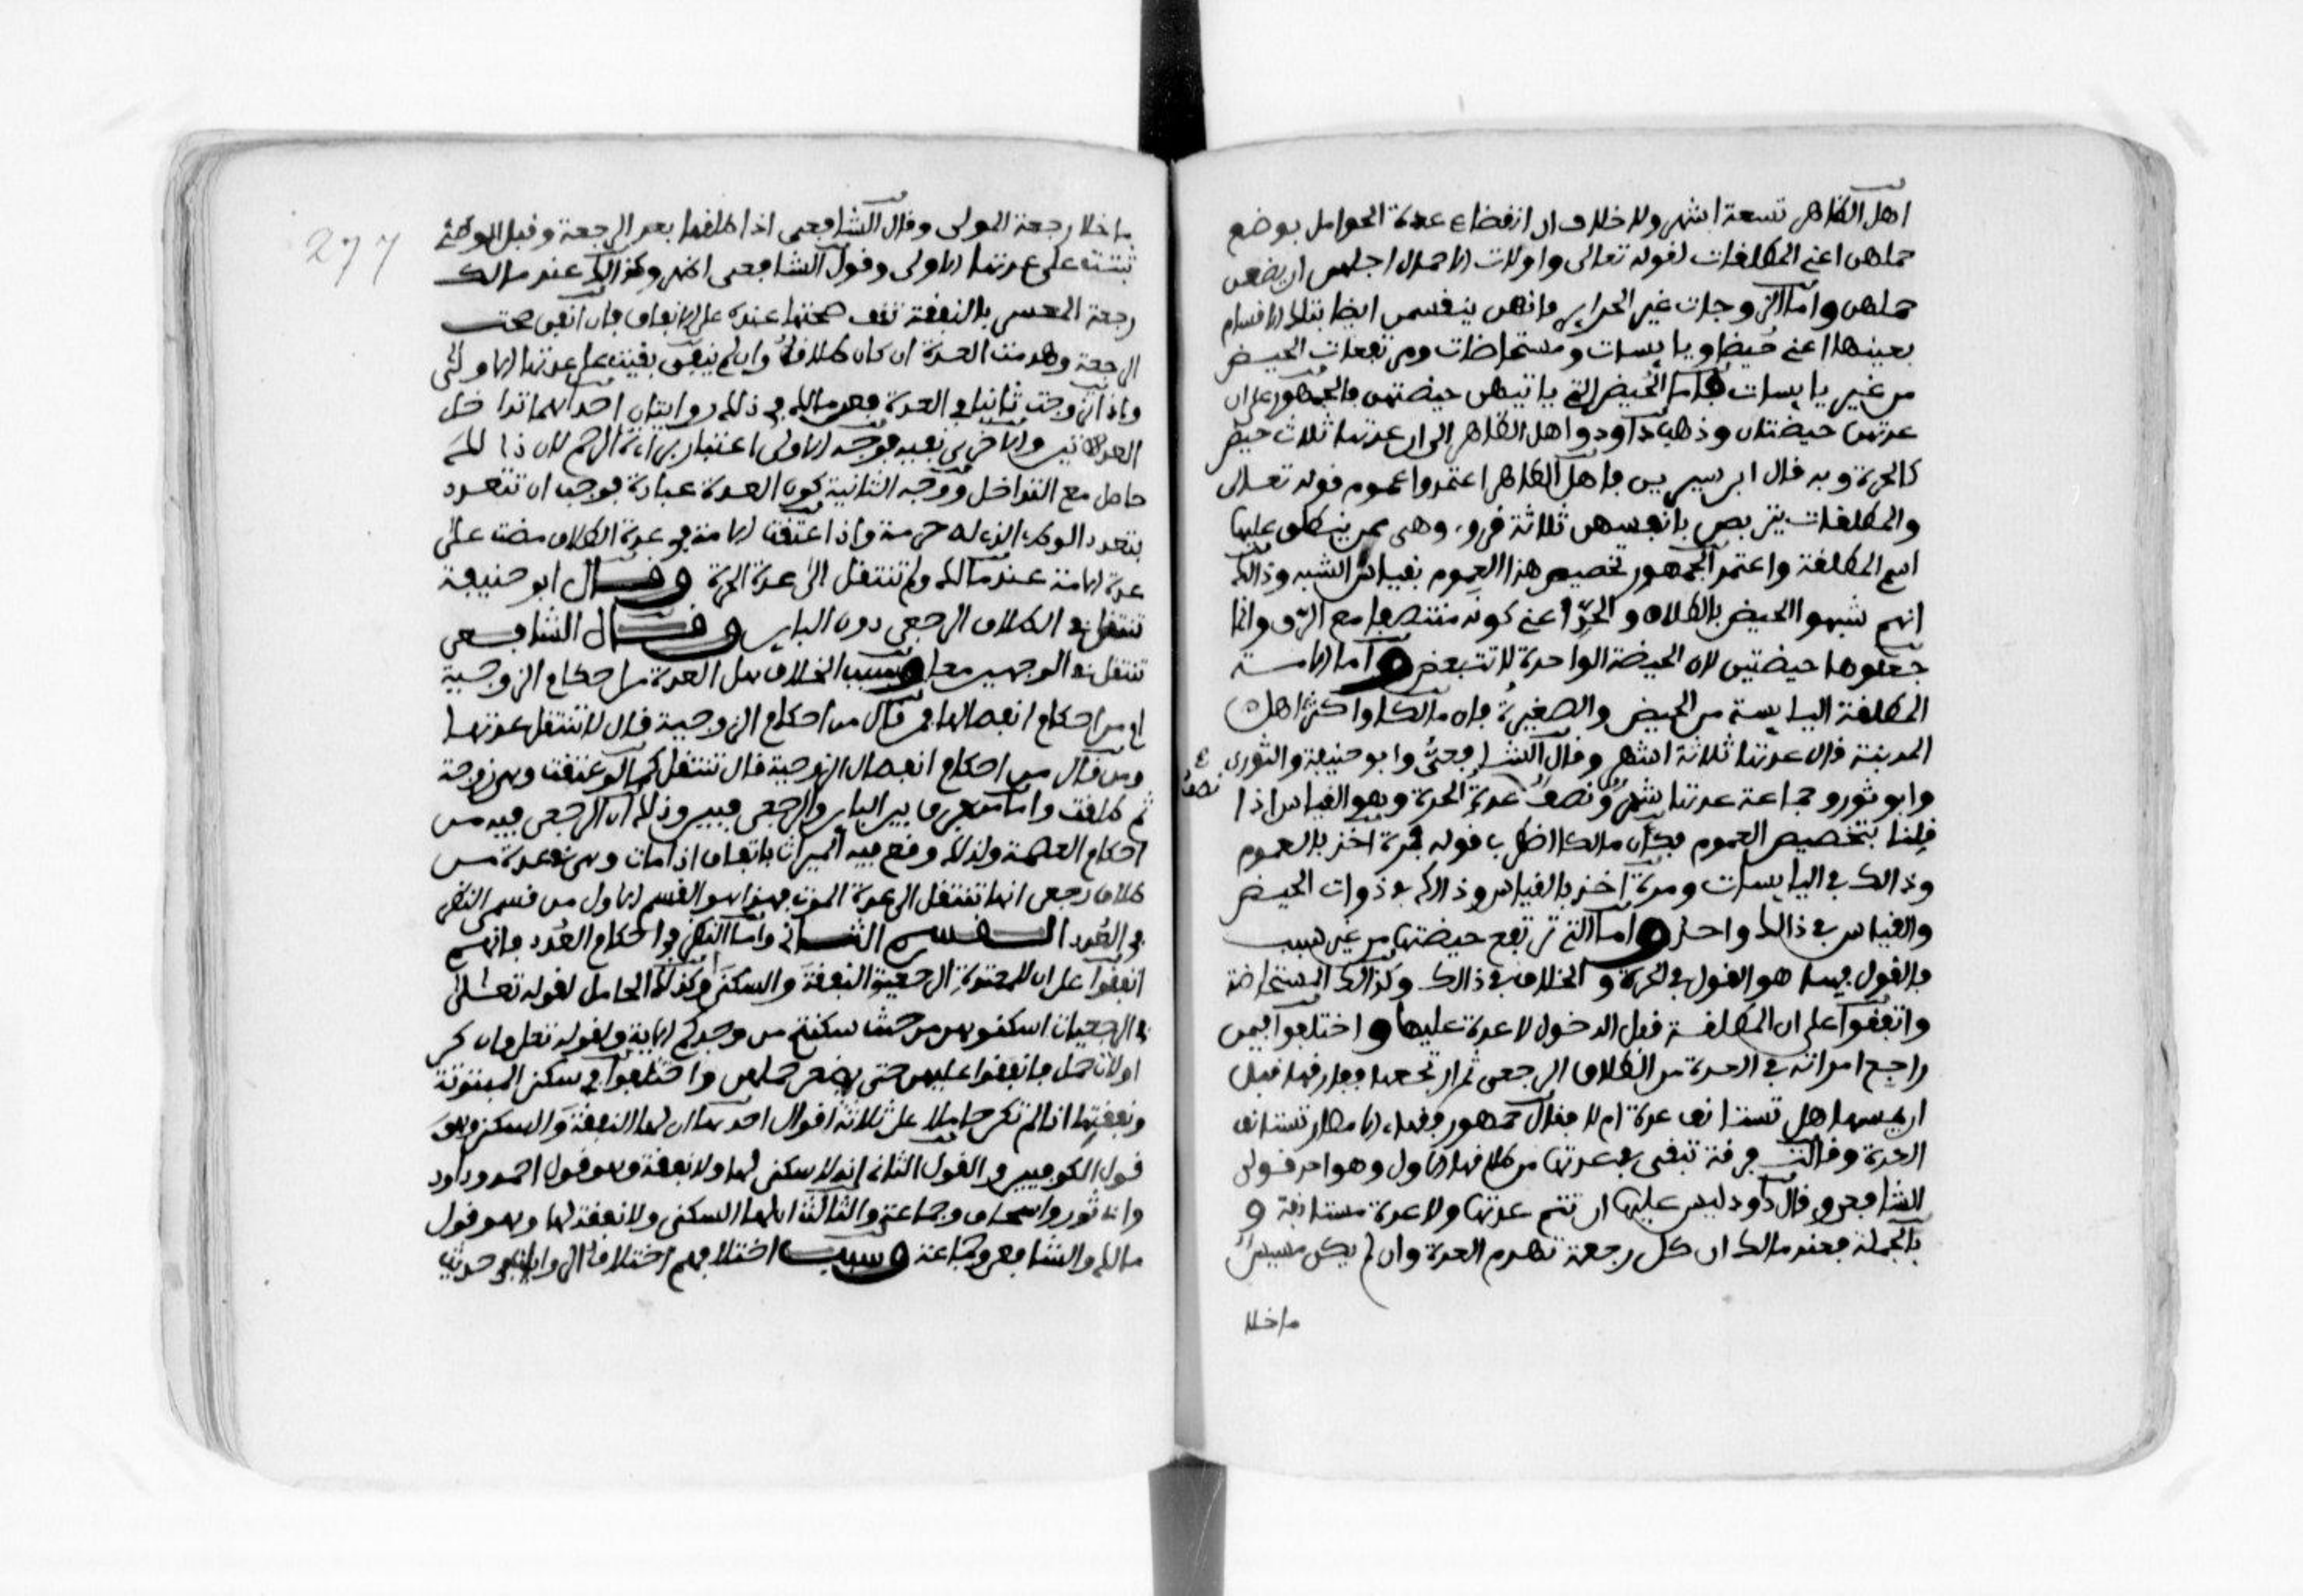 اهل الظاهر تسعة اشهر ولا خلاف ان انقضاء عدة الحوامل بوضع
حملهن اعني المطلقات لقوله تعالى واولات الاحمال اجلهن ان يضعن
حملهن واما الزوجات غير الحراير فانهن ينقسمن ايضا بتلك الاقسام
بعينها اعني حيضا ويايسات ومستحاضات ومرتفعات الحيض
من غير يايسات فاما الحيض التي ياتيهن حيضتهن فالجمهور على ان
عدتهن حيضتان وذهب داود واهل الظاهر الى ان عدتها ثلاث حيض
كالحرة وبه قال ابن سيرين فاهل الظاهر اعتمدوا عموم قوله تعالى
والمطلقات يتربصن بانفسهن ثلاثة قروء وهي ممن ينطلق عليها
اسم المطلقة واعتمد الجمهور تخصيص هذا العموم بقياس الشبه وذالك
انهم شبهوا الحيض بالطلاق والحد اعني كونه متنصفا مع الرق وانما
جعلوها حيضتين لان الحيضة الواحدة لا تتبعض واما الامة
المطلقة اليايسة من الحيض والصغيرة فان مالكا واكثر اهل
المدينة قال عدتها ثلاثة اشهر وقال الشافعي وابو حنيفة والثوري
وابو ثور وجماعة عدتها شهر ونصف عدة الحرة وهو القياس اذا
نصف
قلنا بتخصيص العموم فكان مالكا اضطرب قوله فمرة اخذ بالعموم
وذالك في اليايسات ومرة اخذ بالقياس وذالك في ذوات الحيض
والقياس في ذالك واحد واما التي ترتفع حيضتها من غير سبب
فالقول فيها هو القول في الحرة والخلاف في ذالك وكذالك المستحاضة
واتفقوا على ان المطلقة قبل الدخول لا عدة عليها واختلفوا فيمن
راجع امراته في العدة من الطلاق الرجعي ثم ارتجعها ففارقها قبل
ان يمسها هل تستانف عدة ام لا فقال جمهور فقهاء الامصار تستانف
العدة وقالت فرقة تبقى في عدتها من طلاقها الاول وهو احد قولي
الشافعي وقال داود ليس عليها ان تتم عدتها ولا عدة مستانفة و
بالجملة فعند مالك ان كل رجعة تهدم العدة وان لم يكن مسيس
ماخلا
277
ماخلا رجعة المولى وقال الشافعي اذا طلقها بعد الرجعة وقبل الوطئ
ثبتت على عدتها الاولى وقول الشافعي اظهر وكذالك عند مالك
رجعة المعسر بالنفقة تقف صحتها عنده على الانفاق فان انفق صحت
الرجعة وهدمت العدة ان كان طلاقا وان لم ينفق بقيت على عدتها الاولى
واذا تزوجت ثانيا في العدة فعن مالك في ذلك روايتان احداهما تداخل
العدتين والاخرى نفيه فوجه الاولى اعتبار براءة الرحم لان ذالك
حاصل مع التداخل ووجه الثانية كون العدة عبادة فوجب ان تتعدد
بتعدد الوطء الذي له حرمة واذا اعتقت الامة في عدة الطلاق مضت على
عدة الامة عند مالك ولم تنتقل الى عدة الحرة وقال ابو حنيفة
تنتقل في الطلاق الرجعي دون الباين وقال الشافعي
تنتقل في الوجهين معا وسبب الخلاف هل العدة من احكام الزوجية
ام من احكام انفصالها فمن قال من احكام الزوجية قال لا تنتقل عدتها
ومن قال من احكام انفصال الزوجية قال تنتقل كما لو عتقت وهي زوجة
ثم طلقت واما من فرق بين الباين والرجعي فبين وذلك ان الرجعي فيه من
احكام العصمة ولذلك وقع فيه الميراث باتفاق اذا مات وهي في عدة من
طلاق رجعي انها تنتقل الى عدة الموت فهذا هو القسم الاول من قسمي النظر
في العدد القسم الثاني واما النظر في احكام العدد فانهم
اتفقوا على ان للمعتدة الرجعية النفقة والسكنى وكذلك الحامل لقوله تعلى
في الرجعيات اسكنوهن من حيث سكنتم من وجدكم الاية ولقوله تعلى وان كن
اولات حمل فانفقوا عليهن حتى يضعن حملهن واختلفوا في سكنى المبتوتة
ونفقتها اذا لم تكن حاملا على ثلاثة اقوال احدها ان لها النفقة والسكنى وهو
قول الكوفيين والقول الثاني انه لا سكنى لها ولا نفقة وهو قول احمد وداود
وابي ثور واسحاق وجماعة والثالث ان لها السكنى ولا نفقة لها وهو قول
مالك والشافعي وجماعة وسبب اختلافهم اختلاف الرواية في حديث